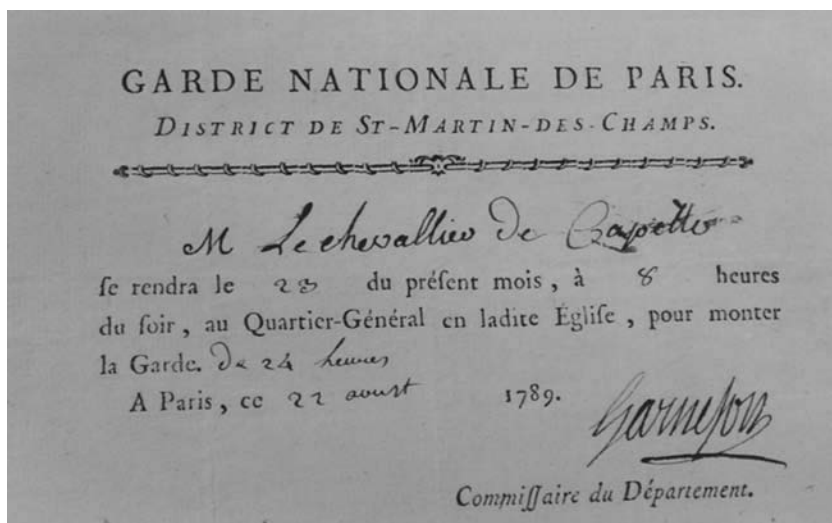 GARDE NATIONALE DE PARIS.
DISTRICT DE ST-MARTIN-DES-CHAMPS.
M Lechevallier De
ſe rendra le 23 du préſent mois, à 8 heures
du ſoir, au Quartier-Général en ladite Égliſe, pour monter
la Garde. De 24 heures
A Paris, ce 22 aoust 1789.
Commiſſaire du Département.